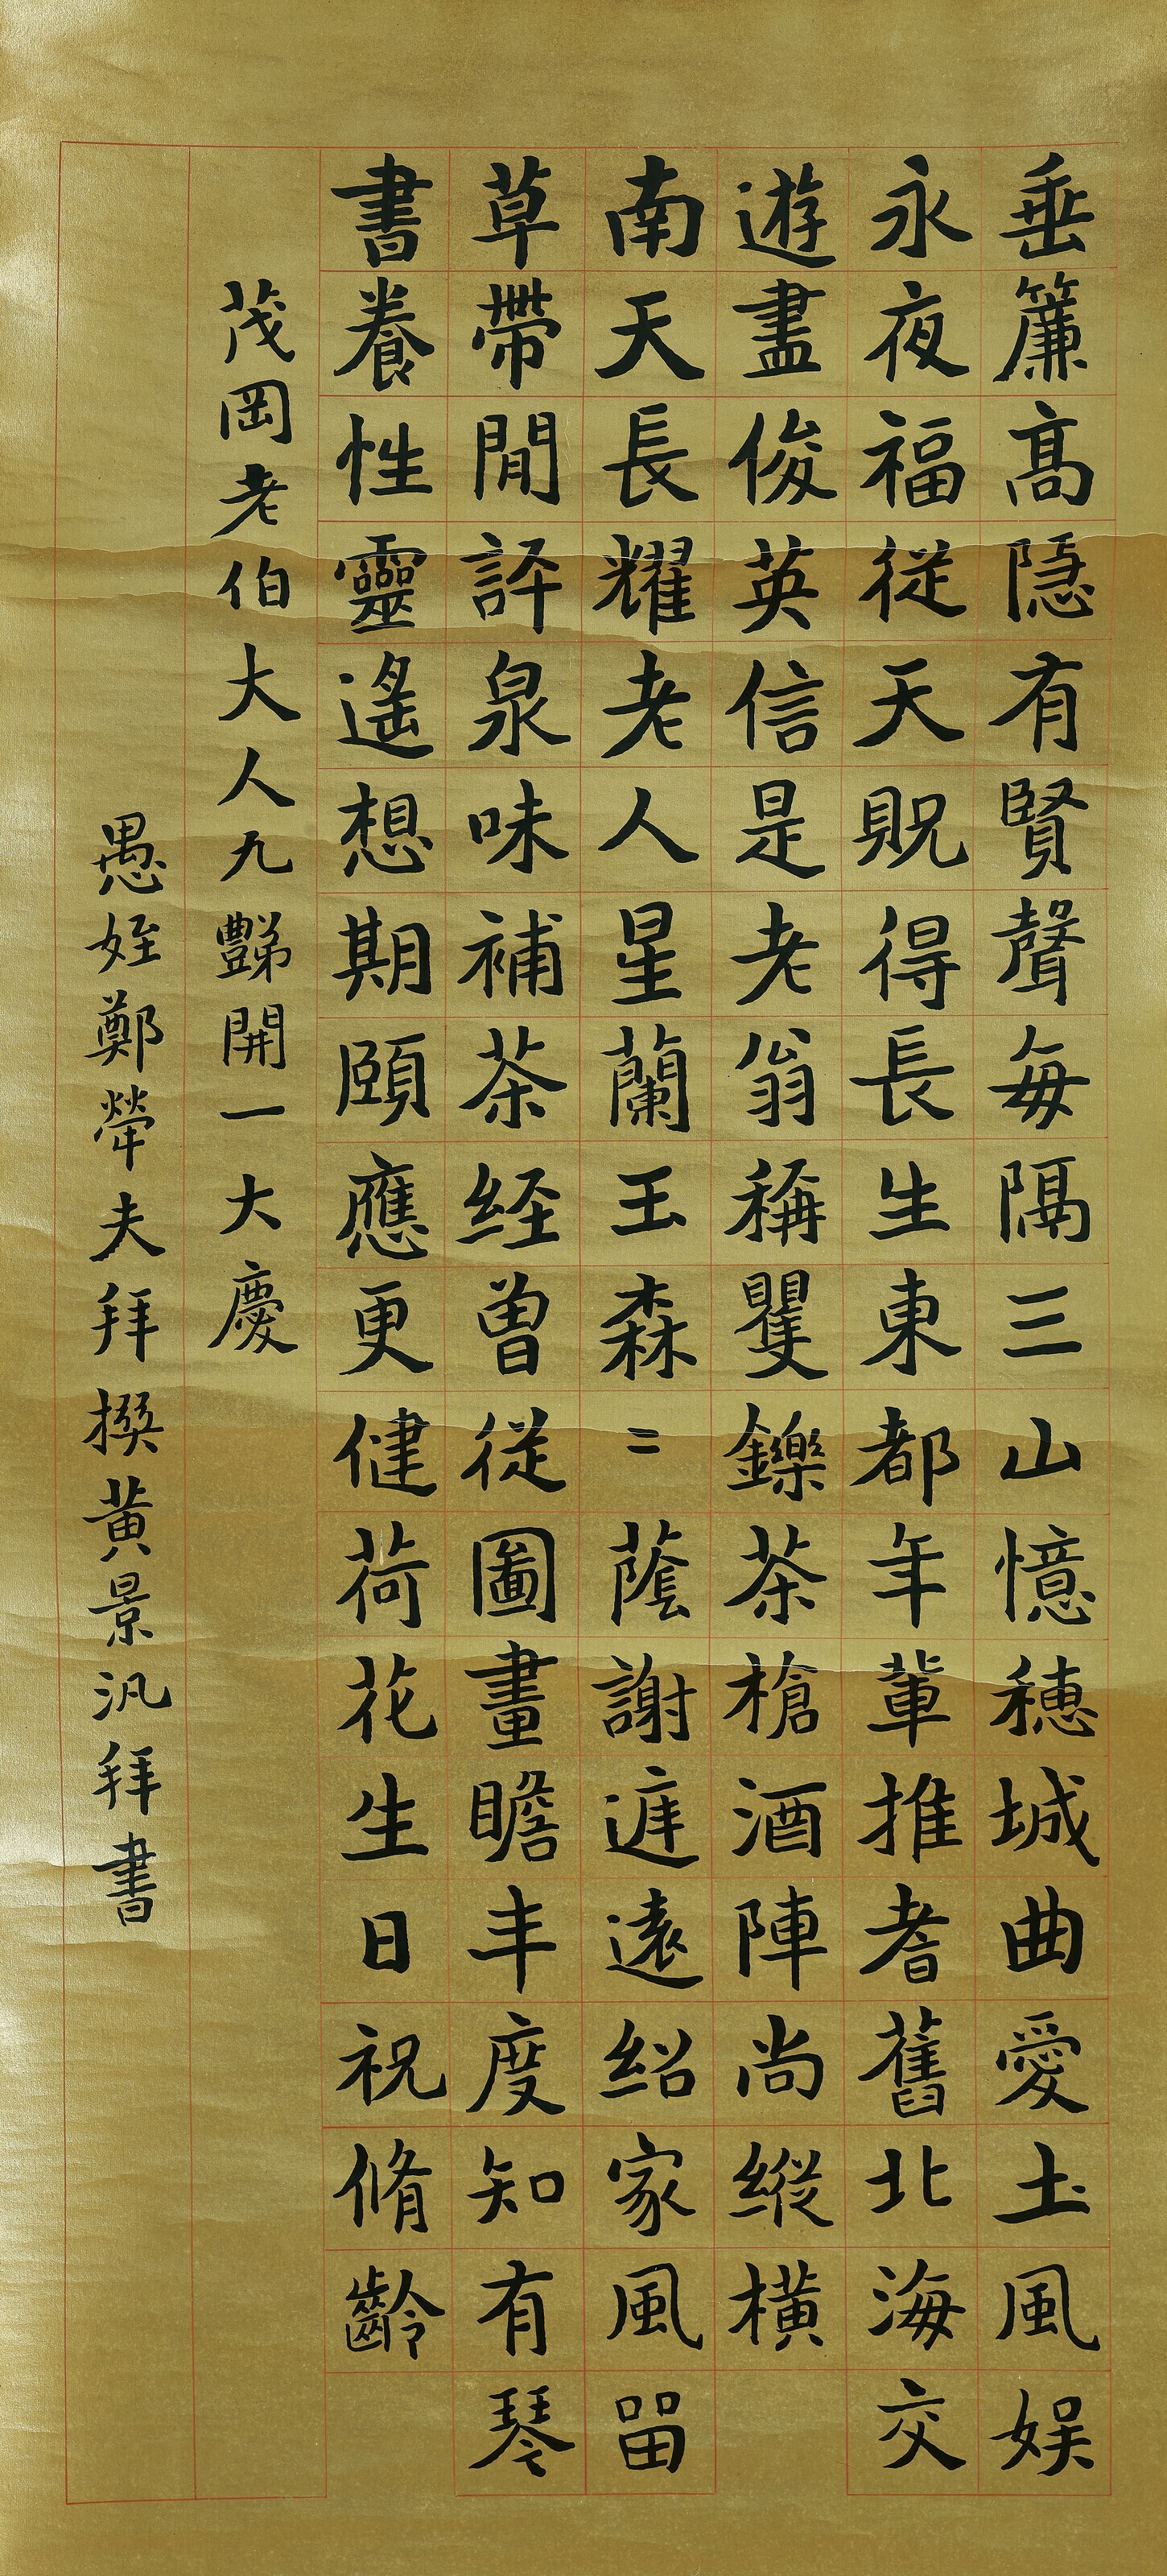 垂簾高隱有賢聲每隔三山憶穗城曲愛土風娱
永夜福從天貺得長生東都年輩推耆舊北海交
遊盡俊英信是老翁稱矍鑠茶槍酒陣尚縱橫
南天長耀老人星蘭玉森〻蔭謝遲遠紹家風留
草帶閒評泉味補茶經曾從圖畫瞻丰度知有琴
書養性靈遙想期頤應更健荷花生日祝脩齡
茂岡老伯大人九豔開一大慶
愚姪鄭犖夫拜撰黃景汎拜書